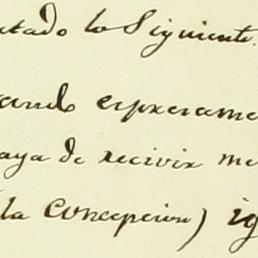 ntado lo Siguiente.
ando expresame
aya de recivir me
(la Concepcion) ig